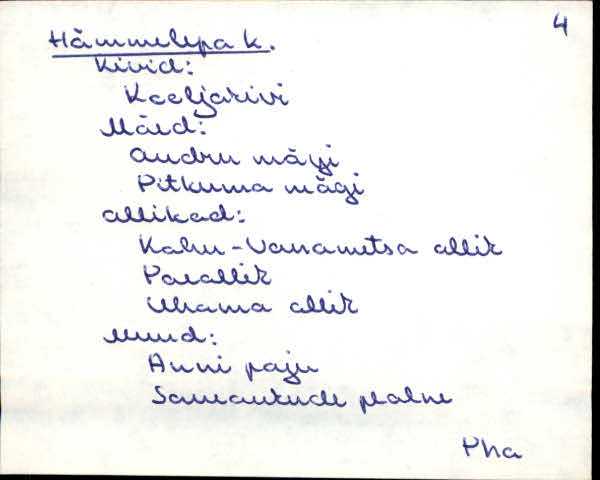 4
Hämmelepa k.
Kivid:
Kooljakivi
Mäed:
Andru mägi
Pitkuma mägi
Allikad:
Kahu-Vanametsa allik
Paeallik
Uhama allik
Muud:
Anni paju
Saueaukude
Pha